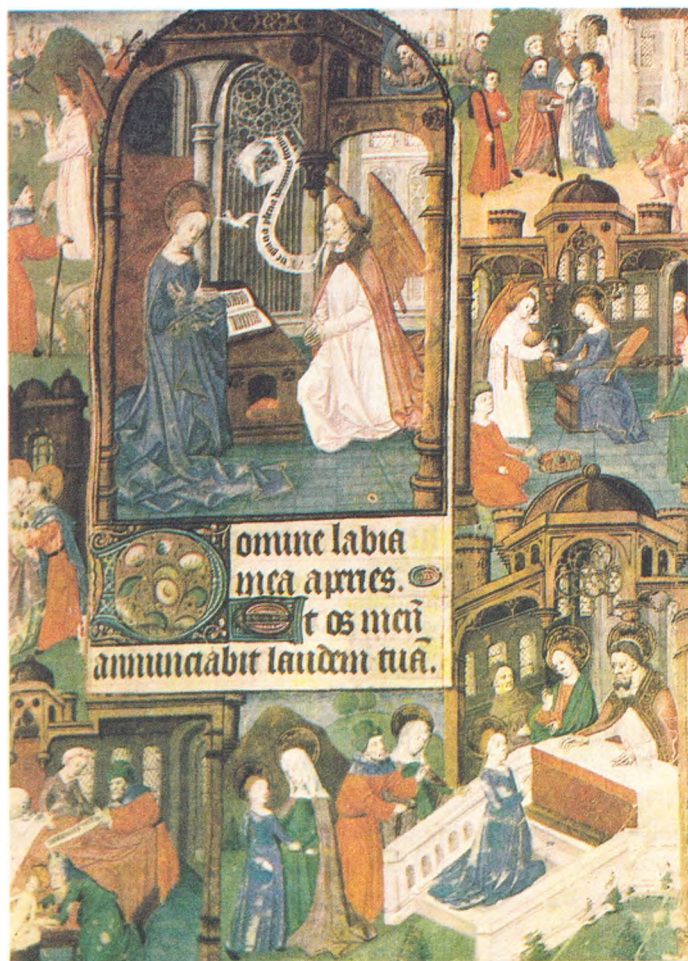 plena
Domine labia
mea aperies.
Et os meū
annunciabit laudem tuā.